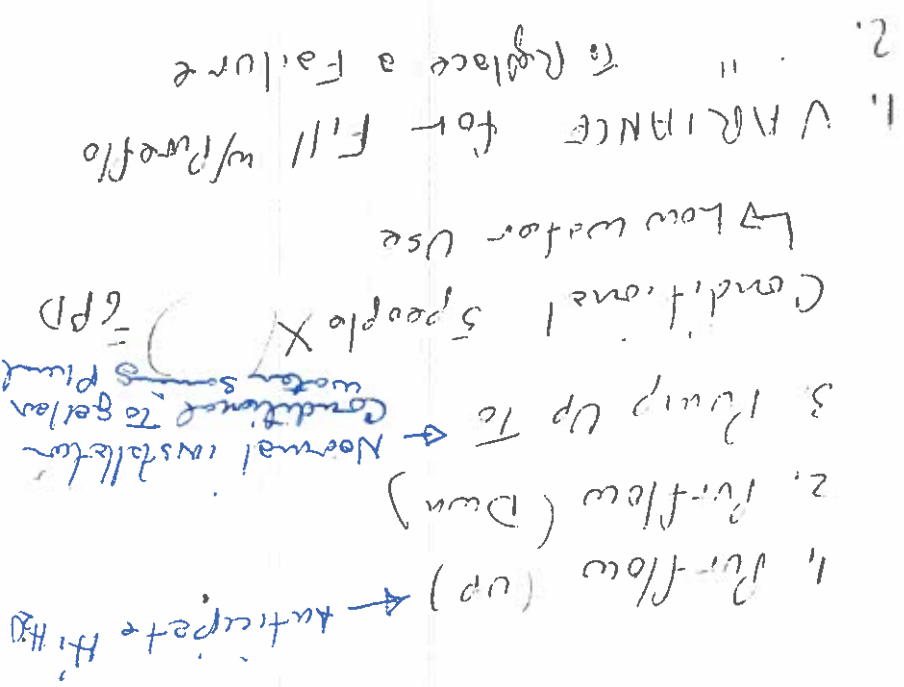 1. Pur-flow (up) ← Anticipate Hi H2O
2. Pur-flow (Down)
3. Pump Up To ← Normal installation
Conditional To get on
water saving plumb
Conditional 5 people X ( ) = GPD
↳ Low water Use
1. VARIANCE for Fill w/Pureflo
2. " To Replace a Failure